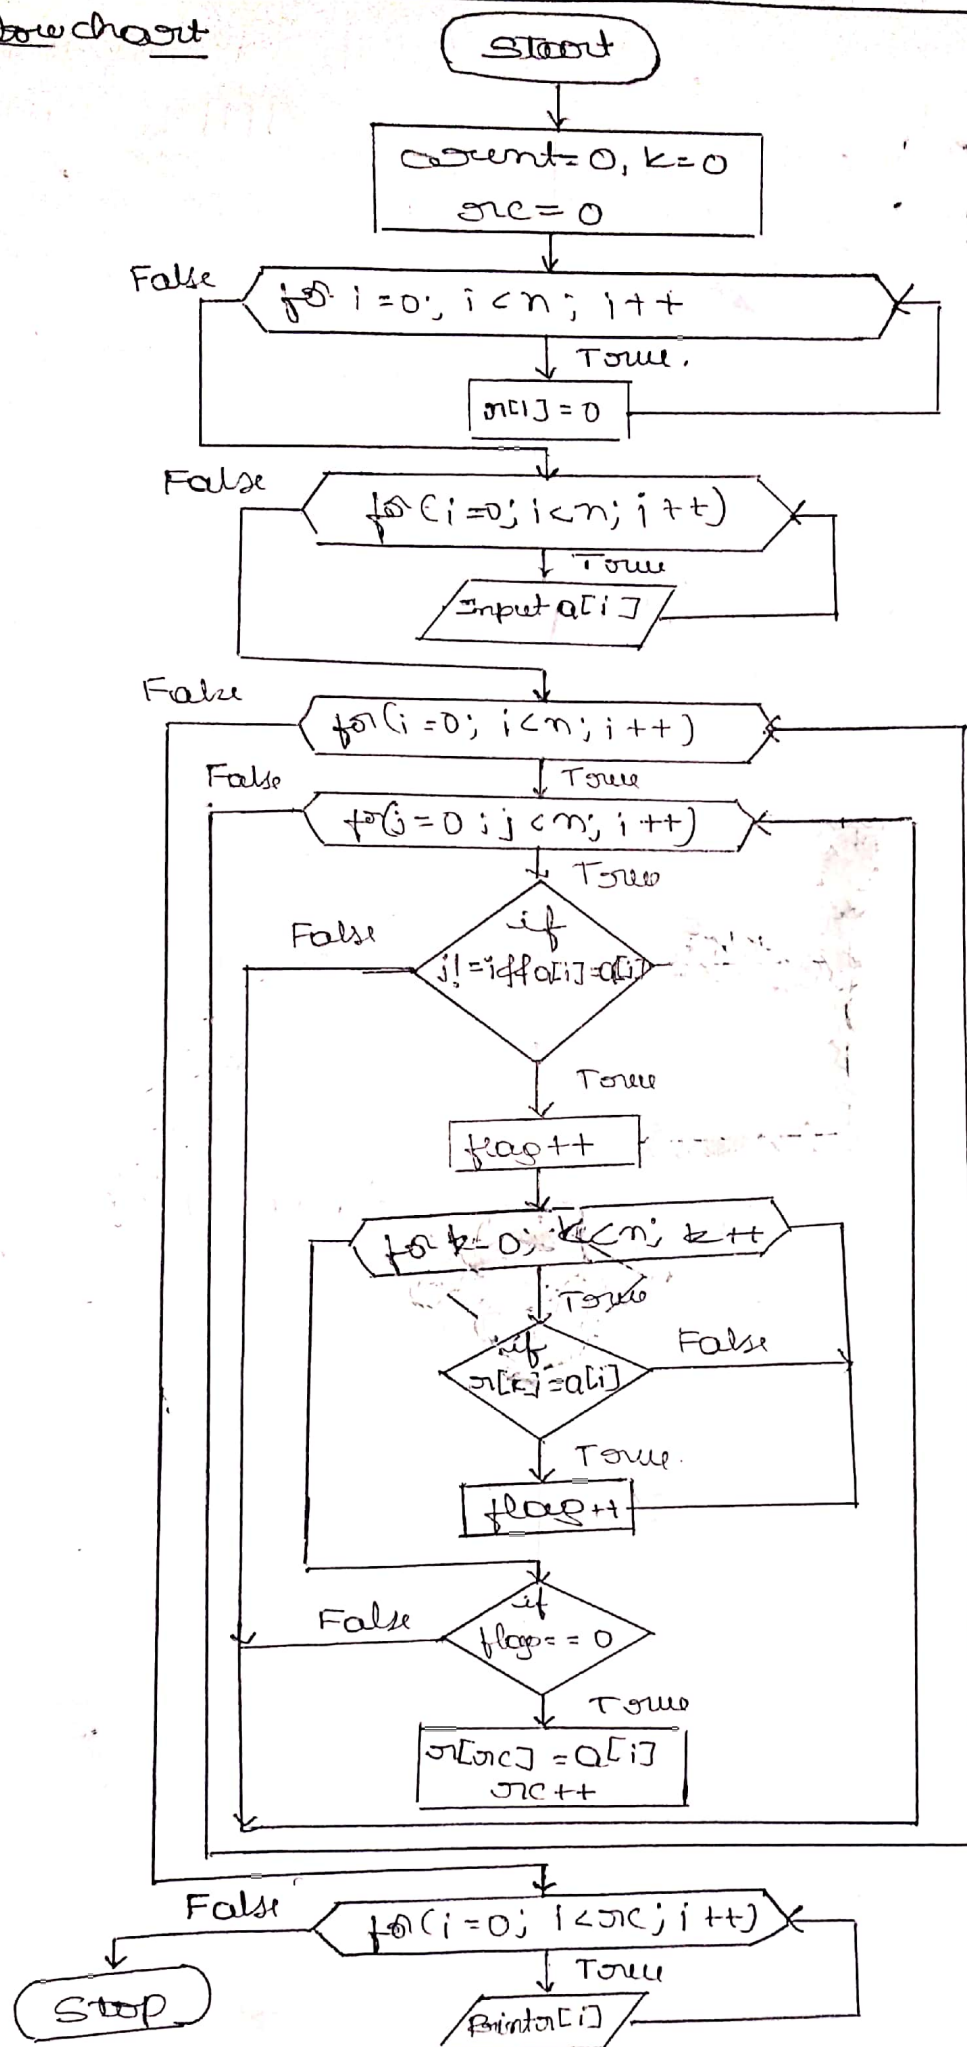 Flowchart
Start
count=0, k=0
rc=0
False
for i=0; i<n; i++
True.
r[i]=0
False
for(i=0; i<n; i++)
True
Input a[i]
False
for(i=0; i<n; i++)
False
True
for(j=0; j<n; j++)
True
False
if
j!=i&&a[i]=a[j]
True
flag++
for k=0; k<n; k++
True
if
False
r[k]=a[i]
True.
flag++
if
False
flag==0
True
r[rc]=a[i]
rc++
False
for(i=0; i<rc; i++)
True
Stop
Print r[i]